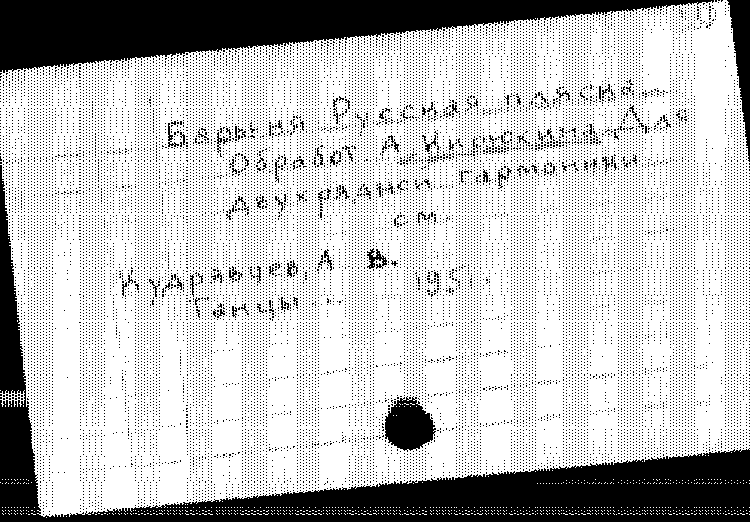 Барыня Русская пляска
Обработ А Кирюхина, Для
двухрядней гармоники
см.
Кудрявцев, А В.
Танцы ... 1951.